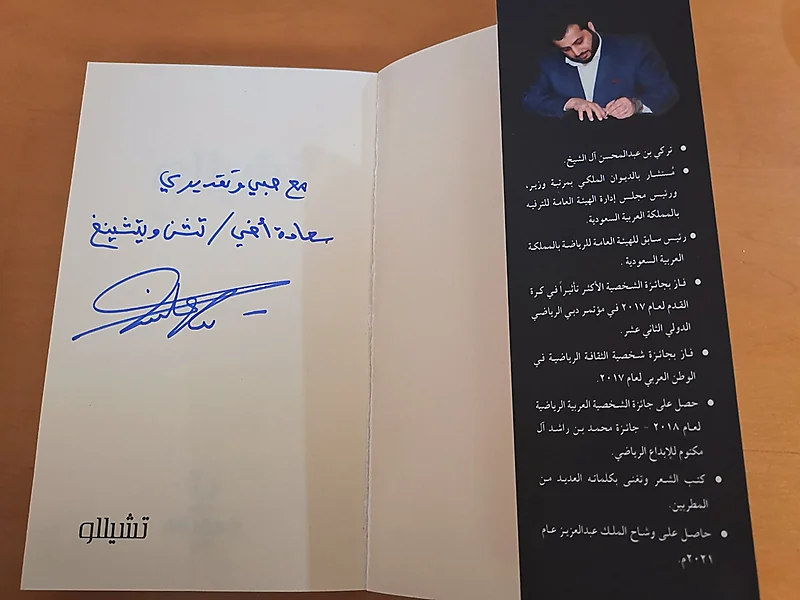 مع حبي وتقديري
سعادة أخي / تشن ويتشينغ
تشيللو
تركي بن عبدالمحسن آل الشيخ.
مُستشار بالديوان الملكي بمرتبة وزير،
ورئيس مجلس إدارة الهيئة العامة للترفيه
بالمملكة العربية السعودية.
رئيس سابق للهيئة العامة للرياضة بالمملكة
العربية السعودية.
فاز بجائزة الشخصية الأكثر تأثيراً في كرة
القدم لعام ٢٠١٧ في مؤتمر دبي الرياضي
الدولي الثاني عشر.
فاز بجائزة شخصية الثقافة الرياضية في
الوطن العربي لعام ٢٠١٧.
حصل على جائزة الشخصية العربية الرياضية
لعام ٢٠١٨ - جائزة محمد بن راشد آل
مكتوم للإبداع الرياضي.
كتب الشعر وتغنى بكلماته العديد من
المطربين.
حاصل على وشاح الملك عبدالعزيز عام
٢٠٢١م.